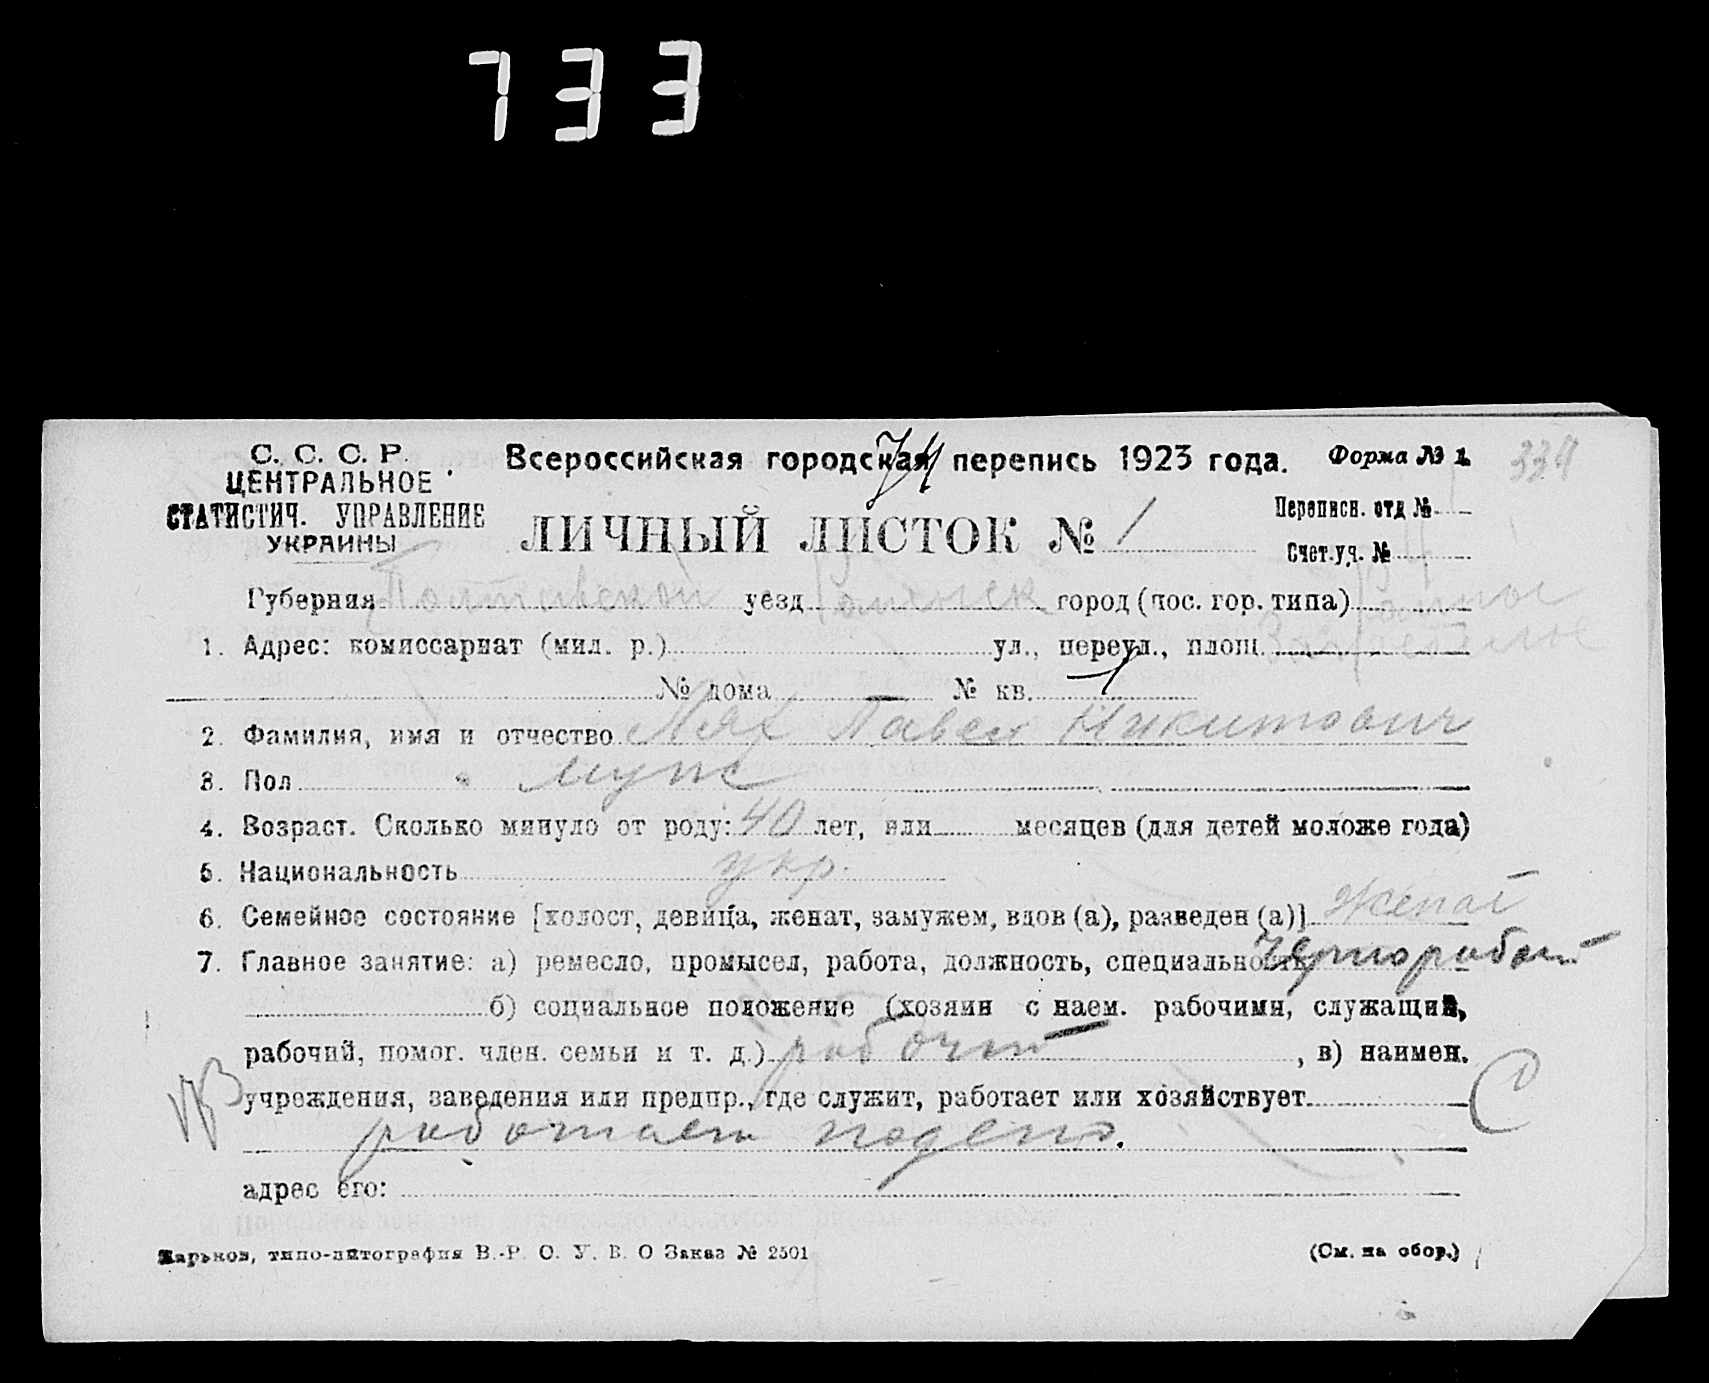 733
С. С. С. Р.
ЦЕНТРАЛЬНОЕ
СТАТИСТИЧ. УПРАВЛЕНИЕ
УКРАИНЫ
Всероссийская городская перепись 1923 года.
Форма № 1.
ЛИЧНЫЙ ЛИСТОК № 1
Переписн. отд №
Счет.уч. №
Губерния Полтавской уезд город (пос. гор. типа)
1. Адрес: комиссариат (мил. р.) ул., переул., площ.
№ дома — № кв. 1
2. Фамилия, имя и отчество Лях Павел Никитович
3. Пол муж
4. Возраст. Сколько минуло от роду: 40 лет, или месяцев (для детей моложе года)
5. Национальность укр.
6. Семейное состояние [холост, девица, женат, замужем, вдов (а), разведен (а)] женат
7. Главное занятие: а) ремесло, промысел, работа, должность, специальность Чернорабоч
б) социальное положение (хозяин с наем. рабочими, служащий,
рабочий, помог. член. семьи и т. д.) рабочий, в) наимен.
учреждения, заведения или предпр., где служит, работает или хозяйствует
работает поденно.
адрес его:
Харьков, типо-литография В.-Р. О. У. В. О Заказ № 2501
(См. на обор.)